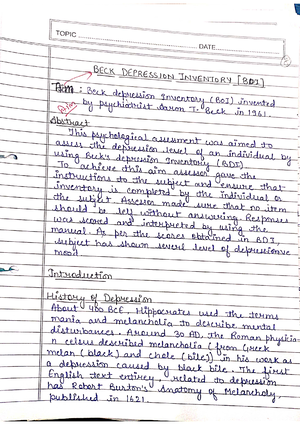 TOPIC
DATE
BECK DEPRESSION INVENTORY [BDI]
Aim : Beck depression Inventory (BDI) invented
Aim by psychiatrist Aaron T. Beck in 1961.
Abstract
This psychological assesment was aimed to
assess the depression level of an individual by
using Beck's depression Inventory (BDI)
To achieve this aim assessor gave the
instructions to the subject and ensure that
inventory is completed by the individual or
the subject. Assessor made sure that no item
should be left without answering. Responses
was scored and interpreted by using the
manual. As per the scores obtained in BDI,
subject has shown severe level of depressionve
mood
Introduction
History of Depression
About 400 BCE, Hippocrates used the terms
mania and melancholia to describe mental
disturbances. Around 30 AD, the Roman physicia-
n celsus described melancholia (from Greek
melan (black) and chole (bile)) in his work as
a depression caused by black bile. The first
English text entirely, related to depression
has Robert Burton's Anatomy of Melancholy,
published in 1621.